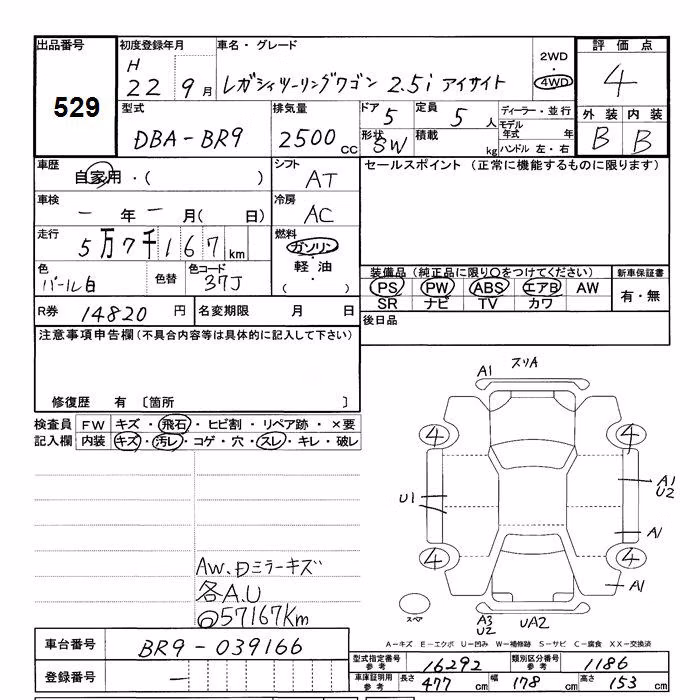 出品番号
529
初度登録年月
H
22 9月
車名・グレード
レガシィツーリングワゴン 2.5i アイサイト
2WD
・
4WD
評価点
4
型式
DBA-BR9
排気量
2500cc
ドア
5
定員
5人
形状
SW
積載
kg
ディーラー・並行
モデル年式 年
ハンドル 左・右
外装 内装
B B
車歴
自家用・( )
シフト
AT
セールスポイント (正常に機能するものに限ります)
車検
一年一月( 日)
冷房
AC
走行
5万7千167km
燃料
ガソリン
軽油
( )
色
パール白
色替
色コード
37J
装備品 (純正品に限り○をつけてください)
新車保証書
PS PW ABS エアB AW
有・無
SR ナビ TV カワ
R券 14820円
名変期限 月 日
後日品
注意事項申告欄(不具合内容等は具体的に記入して下さい)
修復歴 有 〔箇所 〕
検査員
記入欄
FW キズ・飛石・ヒビ割・リペア跡・×要
内装 キズ・汚レ・コゲ・穴・スレ・キレ・破レ
A1 スリA
4 4
U1
A1
U2
A1
4 4
A1
スペア
A3
U2
UA2
AW、Dミラーキズ
各A.U
57167Km
A-キズ E-エクボ U-凹み W-補修跡 S-サビ C-腐食 XX-交換済
車台番号 BR9-039166
登録番号 ー
型式指定番号 参考 16292
類別区分番号 参考 1186
車庫証明用 参考 長さ 477cm 幅 178cm 高さ 153cm